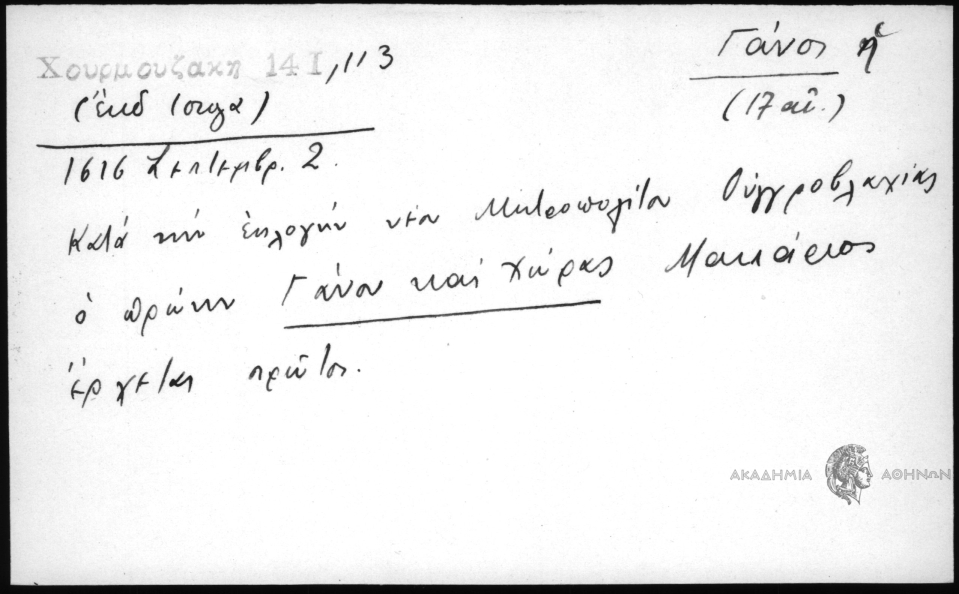 Χουρμουζακη 14 Ι, 113
Γάνος ἡ
(ἔκδ Ιοργα)
(17 αἰ.)
1616 Σεπτεμβρ. 2.
Κατά τήν ἐκλογήν νέου Μητροπολίτου Οὐγγροβλαχίας
ὁ πρώην Γάνου καί Χώρας Μακάριος
ἔρχεται πρῶτος.
ΑΚΑΔΗΜΙΑ ΑΘΗΝΩΝ